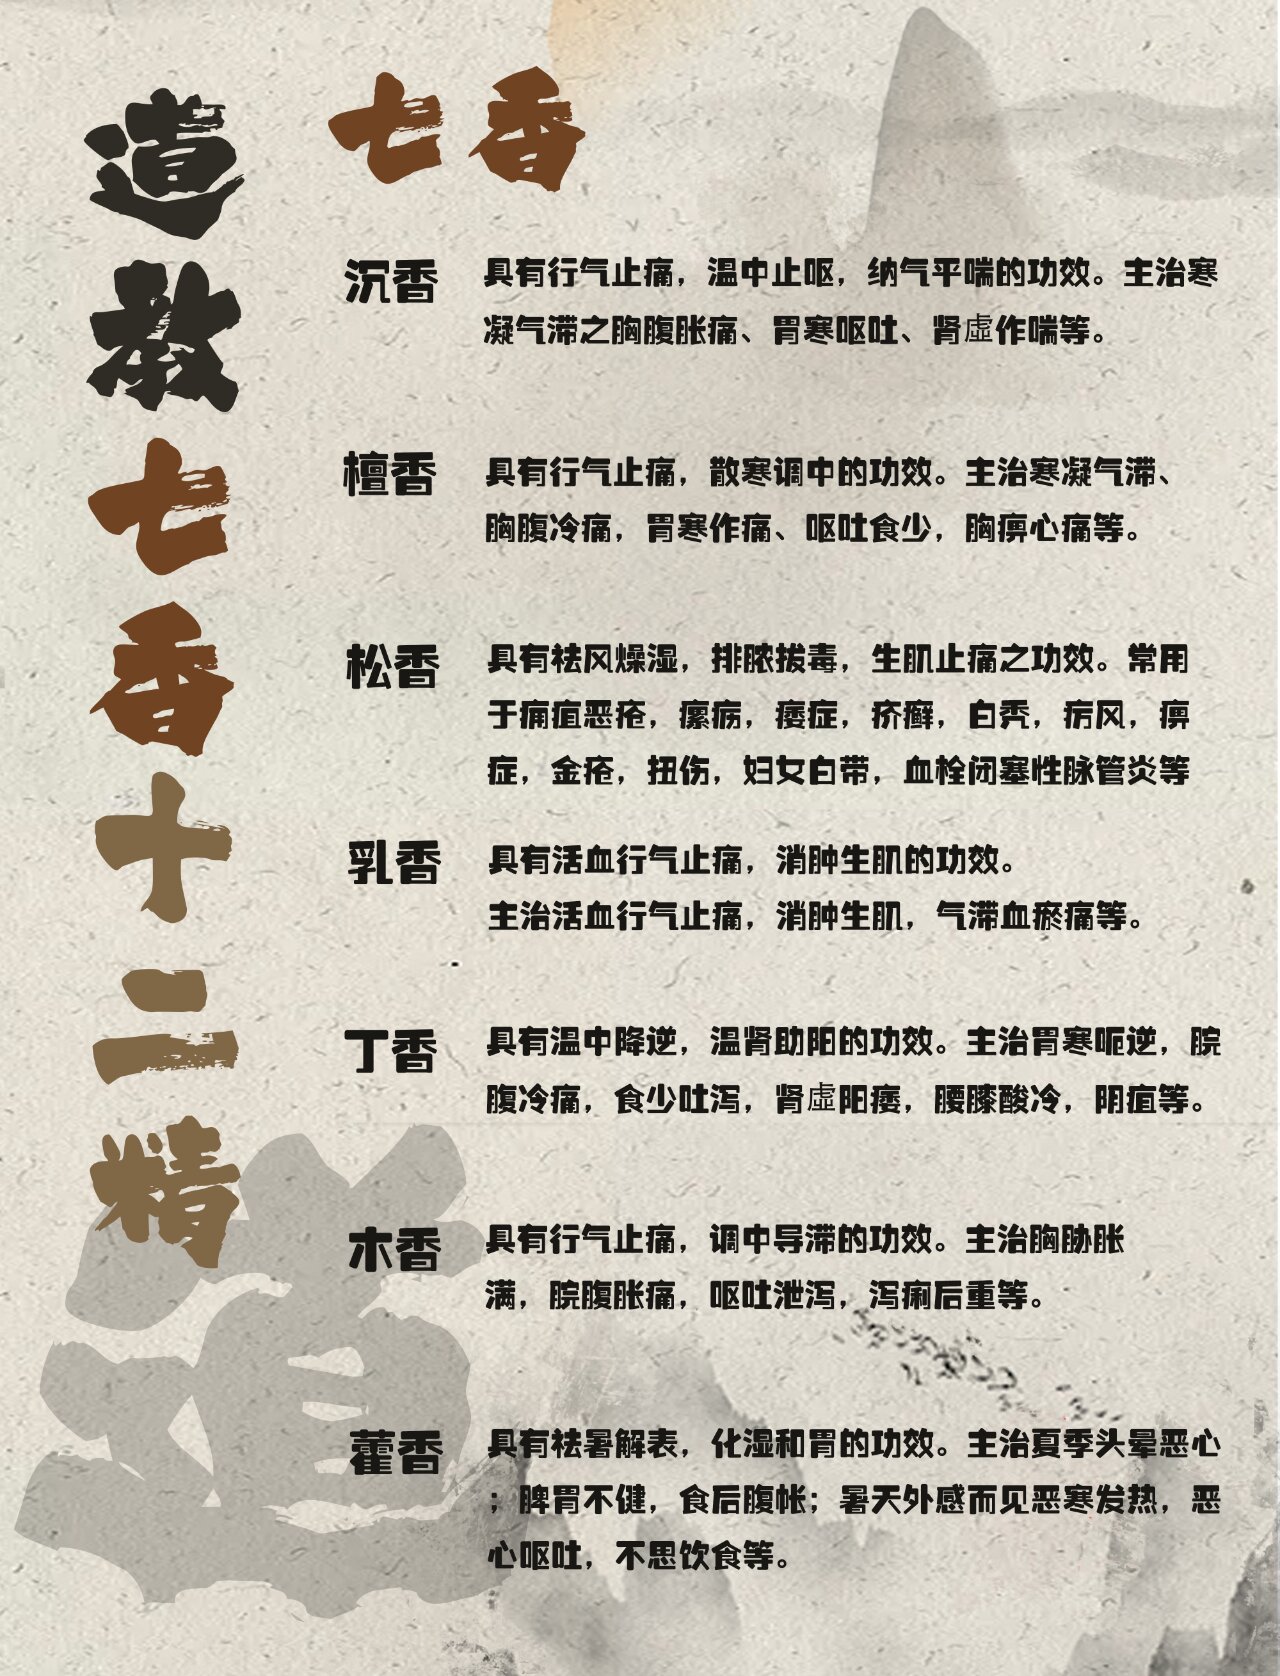 道教七香十二精
七香
沉香
具有行气止痛，温中止呕，纳气平喘的功效。主治寒
凝气滞之胸腹胀痛、胃寒呕吐、肾虚作喘等。
檀香
具有行气止痛，散寒调中的功效。主治寒凝气滞、
胸腹冷痛，胃寒作痛、呕吐食少，胸痹心痛等。
松香
具有祛风燥湿，排脓拔毒，生肌止痛之功效。常用
于痈疽恶疮，瘰疬，痿症，疥癣，白秃，疠风，痹
症，金疮，扭伤，妇女白带，血栓闭塞性脉管炎等
乳香
具有活血行气止痛，消肿生肌的功效。
主治活血行气止痛，消肿生肌，气滞血瘀痛等。
丁香
具有温中降逆，温肾助阳的功效。主治胃寒呃逆，脘
腹冷痛，食少吐泻，肾虚阳痿，腰膝酸冷，阴疽等。
木香
具有行气止痛，调中导滞的功效。主治胸胁胀
满，脘腹胀痛，呕吐泄泻，泻痢后重等。
藿香
具有祛暑解表，化湿和胃的功效。主治夏季头晕恶心
；脾胃不健，食后腹帐；暑天外感而见恶寒发热，恶
心呕吐，不思饮食等。
道